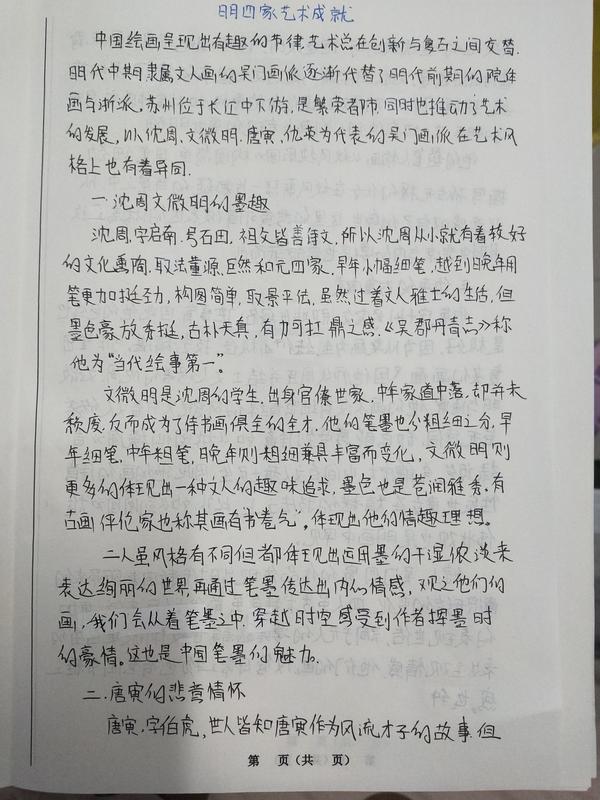 明四家艺术成就
中国绘画呈现出有趣的节律,艺术总在创新与复古之间交替.
明代中期隶属文人画的吴门画派逐渐代替了明代前期的院体
画与浙派,苏州位于长江中下游,是繁荣都市,同时也推动了艺术
的发展,以沈周、文微明、唐寅、仇英为代表的吴门画派在艺术风
格上也有着异同.
一.沈周文微明的墨趣
沈周,字启南,号石田,祖父皆善诗文,所以沈周从小就有着较好
的文化熏陶.取法董源、巨然和元四家,早年小幅细笔,越到晚年用
笔更加挺劲,构图简单,取景平估,虽然过着文人雅士的生活,但
墨色豪放秀挺,古朴天真,有力可扛鼎之感.《吴郡丹青志》称
他为“当代绘事第一”。
文微明是沈周的学生,出身官僚世家,中年家道中落,却并未
颓废,反而成为了诗书画俱全的全才,他的笔墨也分粗细之分,早
年细笔,中年粗笔,晚年则粗细兼具丰富而变化,文微明则
更多的体现出一种文人的趣味追求,墨色也是苍润雅秀.有
古画评伦家也称其画有“书卷气”。体现出他的情趣理想。
二人虽风格有不同但都体现出运用墨的干湿浓淡来
表达绚丽的世界,再通过笔墨传达出内心情感,观之他们的
画,我们会从着笔墨之中,穿越时空感受到作者挥墨时
的豪情。这也是中国笔墨的魅力.
二.唐寅的悲苦情怀
唐寅,字伯虎,世人皆知唐寅作为风流才子的故事,但
第 页(共 页)